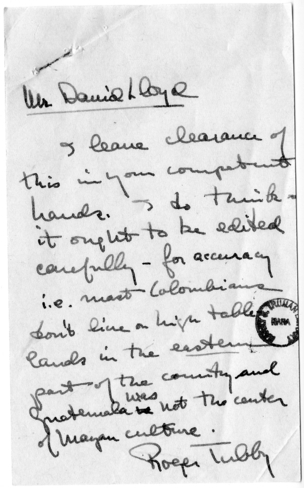 Mr. David Lloyd
I leave clearance of
this in your competent
hands. I do think -
it ought to be edited
carefully - for accuracy
i.e. most Colombians
don't live on high table
lands in the eastern
part of the country and
was
Guatemala not the center
of Mayan culture.
Roger Tubby
NARA